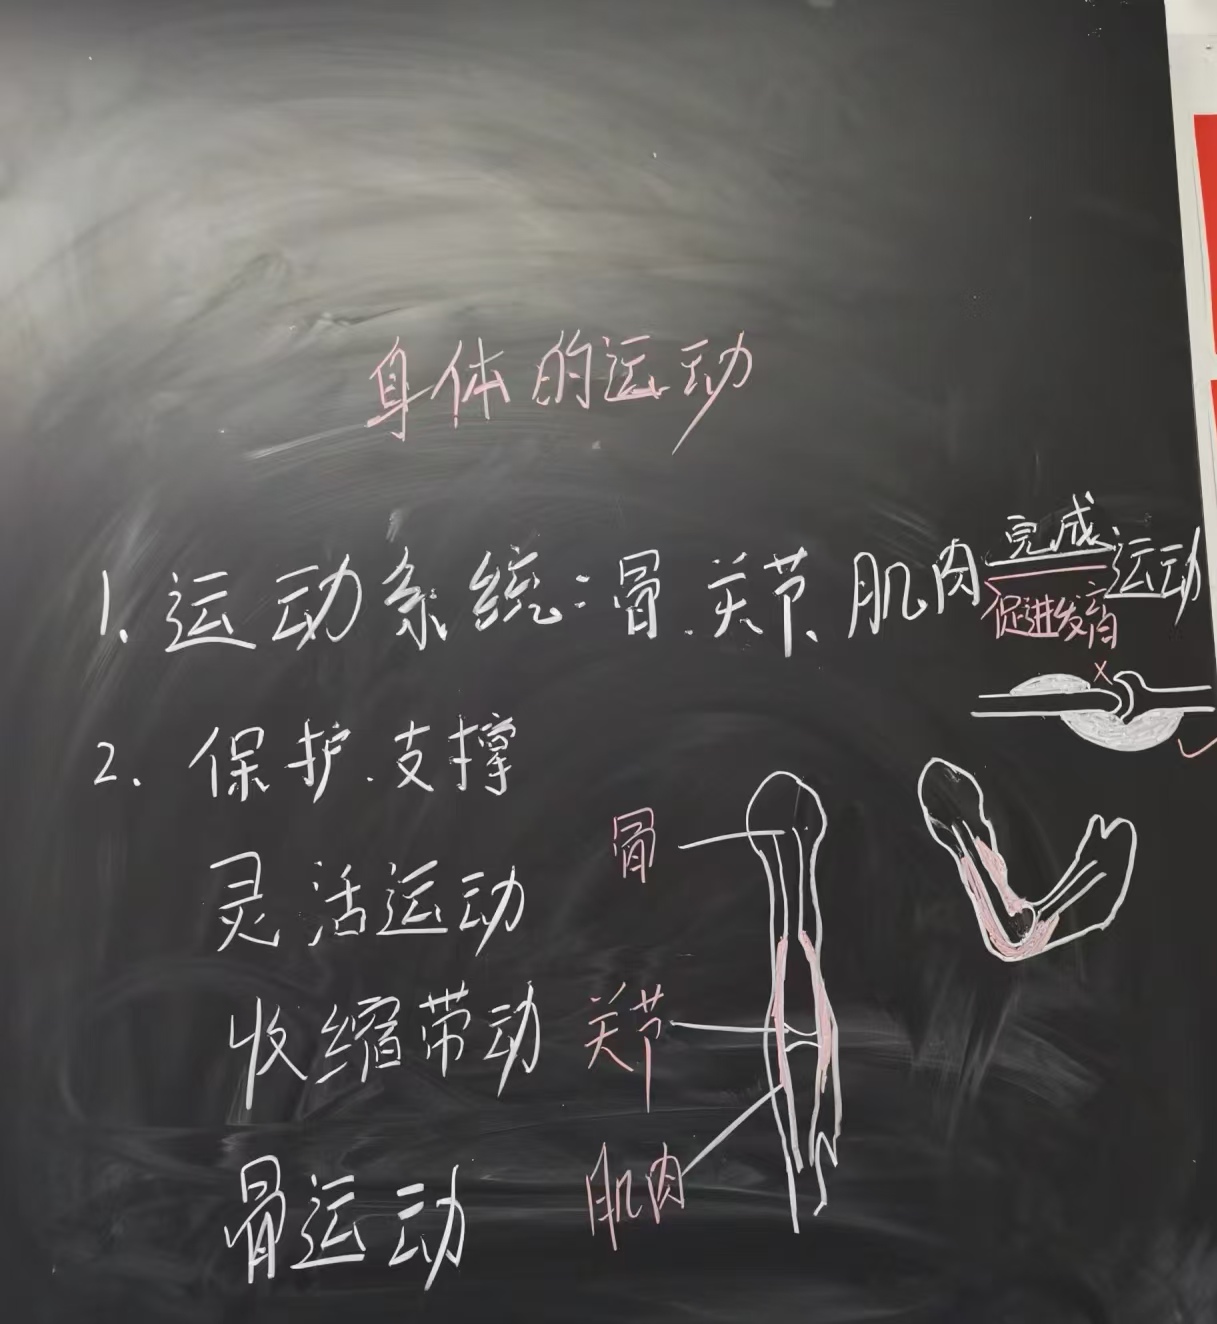 身体的运动
1.运动系统:骨.关节、肌肉 完成 运动
促进发育
×
2.保护.支撑
骨
灵活运动
收缩带动
关节
骨运动
肌肉